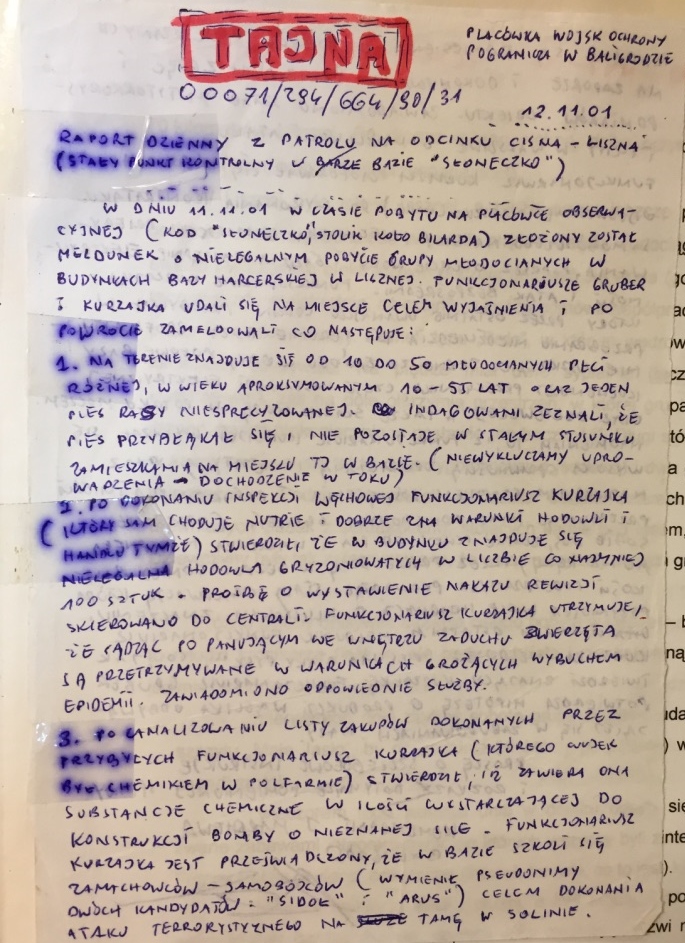 TAJNA
PLACÓWKA WOJSK OCHRONY
POGRANICZA W BALIGRODZIE
00071/294/664/90/31
12.11.01
RAPORT DZIENNY Z PATROLU NA ODCINKU CISNA - LISZNA
(STAŁY PUNKT KONTROLNY W BARZE BAZIE "SŁONECZKO")
W DNIU 11.11.01 W CZASIE POBYTU NA PLACÓWCE OBSERWA-
CYJNEJ (KOD "SŁONECZKO", STOLIK KOŁO BILARDA) ZŁOŻONY ZOSTAŁ
MELDUNEK O NIELEGALNYM POBYCIE GRUPY MŁODOCIANYCH W
BUDYNKACH BAZY HARCERSKIEJ W LICZNEJ. FUNKCJONARIUSZE GRUBER
I KURZAJKA UDALI SIĘ NA MIEJSCE CELEM WYJAŚNIENIA I PO
POWROCIE ZAMELDOWALI CO NASTĘPUJE:
1. NA TERENIE ZNAJDUJE SIĘ OD 10 DO 50 MŁODOCIANYCH PŁCI
RÓŻNEJ, W WIEKU APROKSYMOWANYM 10-55 LAT ORAZ JEDEN
PIES RASY NIESPRECYZOWANEJ. INDAGOWANI ZEZNALI, ŻE
PIES PRZYBŁĄKAŁ SIĘ I NIE POZOSTAJE W STAŁYM STOSUNKU
ZAMIESZKANIA NA MIEJSCU TJ W BAZIE. (NIEWYKLUCZAMY UPRO-
WADZENIA - DOCHODZENIE W TOKU)
2. PO DOKONANIU INSPEKCJI WĘCHOWEJ FUNKCJONARIUSZ KURZAJKA
(KTÓRY SAM CHODUJE NUTRIE I DOBRZE ZNA WARUNKI HODOWLI I
HANDLU TYMŻE) STWIERDZIŁ, ŻE W BUDYNKU ZNAJDUJE SIĘ
NIELEGALNA HODOWLA GRYZONIOWATYCH W LICZBIE CO NAJMNIEJ
100 SZTUK. PROŚBĘ O WYSTAWIENIE NAKAZU REWIZJI
SKIEROWANO DO CENTRALI. FUNKCJONARIUSZ KURZAJKA UTRZYMUJE,
ŻE SĄDZĄC PO PANUJĄCYM WE WNĘTRZU ZADUCHU ZWIERZĘTA
SĄ PRZETRZYMYWANE W WARUNKACH GROŻĄCYCH WYBUCHEM
EPIDEMII. ZAWIADOMIONO ODPOWIEDNIE SŁUŻBY.
3. PO ZANALIZOWANIU LISTY ZAKUPÓW DOKONANYCH PRZEZ
PRZYBYŁYCH FUNKCJONARIUSZ KURZAJKA (KTÓREGO WUJEK
BYŁ CHEMIKIEM W POLFARMIE) STWIERDZIŁ, IŻ ZAWIERA ONA
SUBSTANCJE CHEMICZNE W ILOŚCI WYSTARCZAJĄCEJ DO
KONSTRUKCJI BOMBY O NIEZNANEJ SILE. FUNKCJONARIUSZ
KURZAJKA JEST PRZEŚWIADCZONY, ŻE W BAZIE SZKOLI SIĘ
ZAMACHOWCÓW - SAMOBÓJCÓW (WYMIENIŁ PSEUDONIMY
DWÓCH KANDYDATÓW: "SIDOŁ" I "ARUS") CELEM DOKONANIA
ATAKU TERRORYSTYCZNEGO NA TAMĘ W SOLINIE.